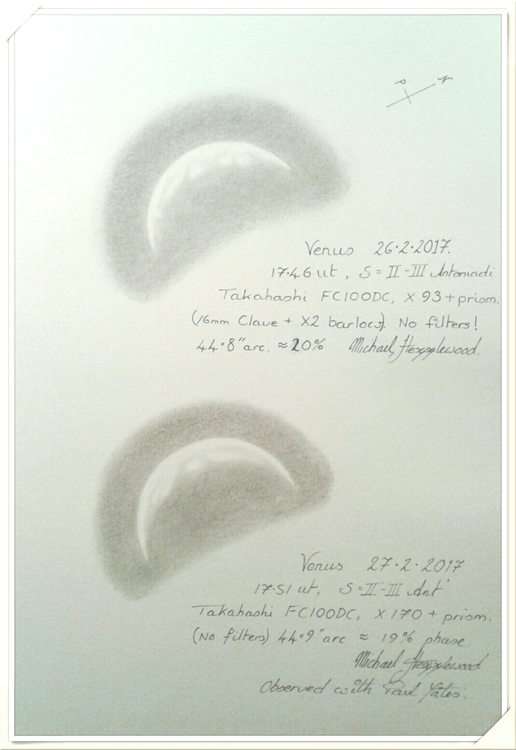 N
P
Venus 26·2·2017.
17·46 ut, S = II-III Antoniadi
Takahashi FC100DC, X 93 + prism.
(16mm Clave + X2 barlow). No filters!
44·8" arc. ≈ 20% Michael
Venus 27·2·2017
17·51 ut, S = II-III Ant'
Takahashi FC100DC, X 170 + prism.
(No filters) 44·9" arc ≈ 19% phase
Michael
Observed with Paul Yates.